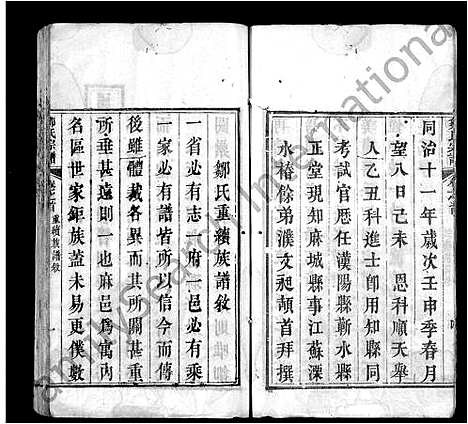 同治十一年歲次壬申季春月
望八日己未 恩科順天舉
人乙丑科進士即用知縣同
考試官歷任漢陽縣蘄水縣
正堂現知麻城縣事江蘇溧
水椿餘弟濮文昶頓首拜撰
鄒氏重續族譜敘
一省必有志一府一邑必有乘
一家必有譜皆所以信今而傳
後雖體裁各異而其所關甚重
所垂甚遠則一也麻邑為寓內
名區世家鉅族蓋未易更僕數
鄒氏宗譜
重續族譜敘
FamilySearch International